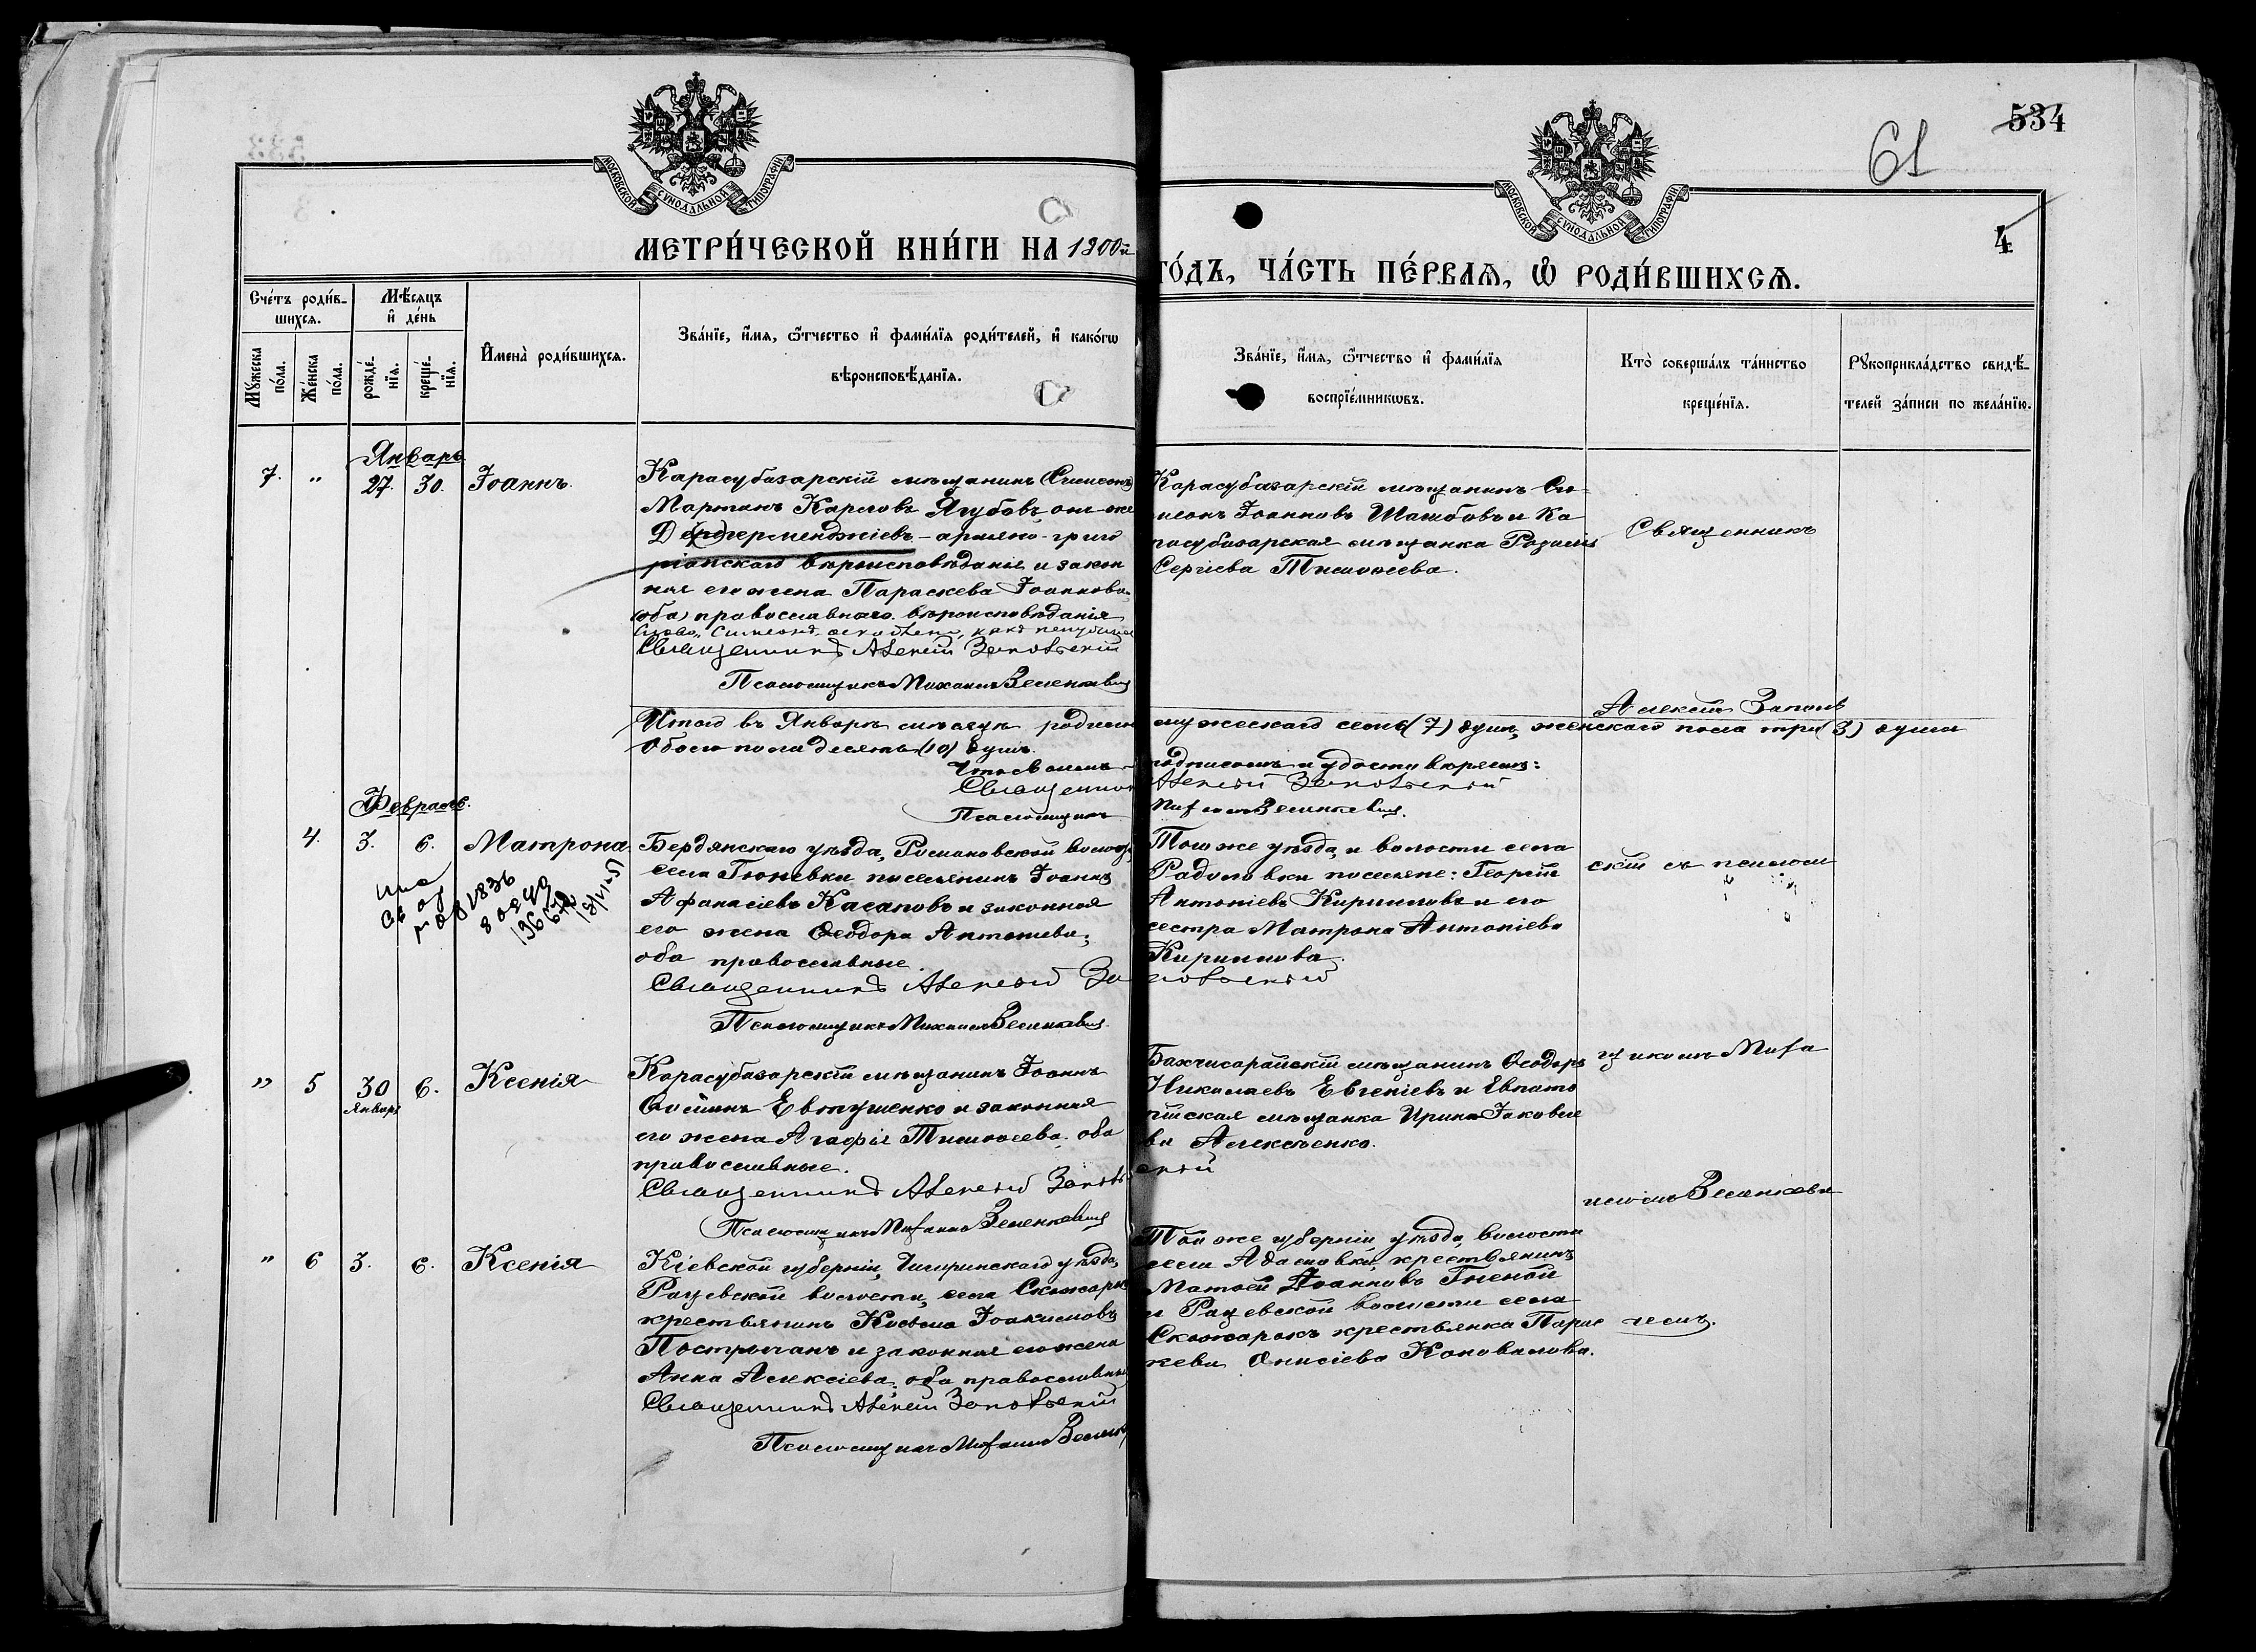 534
61
4
МОСКОВСКОЙ СѴНОДАЛЬНОЙ ТИПОГРАФІИ
МОСКОВСКОЙ СѴНОДАЛЬНОЙ ТИПОГРАФІИ
МЕТРИ́ЧЕСКОЙ КНИ́ГИ НА 1900й
ГО́ДЪ, ЧА́СТЬ ПЕ́РВАѦ, Ѽ РОДИ́ВШИХСѦ.
Сче́тъ роди́в-
шихсѧ.
Мѣ́сѧцъ
и҆ де́нь
Мꙋ́жеска по́ла.
Же́нска по́ла.
рожде́-
нїѧ.
креще́-
нїѧ.
И҆мена̀ роди́вшихсѧ.
Зва́нїе, и҆́мѧ, ѻ҆́тчество и҆ фами́лїѧ роди́телей, и҆ како́гѡ
вѣроисповѣ́данїѧ.
Зва́нїе, и҆́мѧ, ѻ҆́тчество и҆ фами́лїѧ
воспрїе́мникѡвъ.
Кто̀ соверша́лъ та́инство
креще́нїѧ.
Рꙋкоприкла́дство свидѣ́-
телей за́писи по жела́нїю.
Январь
7. " 27. 30. Іоаннъ.
Карасубазарскій мѣщанинъ Симеонъ
Мартинъ Карповъ Ягубовъ, онъ-же
Дегерменджіевъ - армяно-григо
ріанскаго вѣроисповѣданія и закон
ная его жена Параскева Іоаннова
(оба) православнаго вѣроисповѣданія
Слово "Симеонъ
Священникъ Алексій Заповскій
Псаломщикъ Михаилъ Зеленкевичъ
Карасубазарскій мѣщанинъ Си-
меонъ Іоанновъ Шашбовъ и Ка
расубазарская мѣщанка Розалія
Сергіева Тимоѳеева.
Священникъ
Алексій Запов
Итого въ Январѣ мѣсяцѣ родилось мужескаго семь (7) душъ, женскаго пола три (3) души
Обоего пола десять (10) душъ.
Что своимъ подписомъ и удостовѣряемъ:
Священникъ Алексій Заповскій
Псаломщикъ Михаилъ Зеленкевичъ.
Февраль.
4. 3. 6. Матрона
Бердянскаго уѣзда, Романовской волости
села Гюневки поселянинъ Іоаннъ
Афанасіевъ Касаповъ и законная
его жена Ѳеодора Антоніева,
оба православные.
Священникъ Алексій Заповскій
Псаломщикъ Михаилъ Зеленкевичъ.
Того же уѣзда, и волости села
Радоловки поселяне: Георгій
Антоніевъ Кирилловъ и его
сестра Матрона Антоніева
Кириллова.
скій съ псалом
" 5 30 6. Ксенія
Январь
Карасубазарскій мѣщанинъ Іоаннъ
Евтушенко и законная
его жена Агафія Тимоѳеева, оба
православные.
Священникъ Алексій Заповскій
Псаломщикъ Михаилъ Зеленкевичъ
Бахчисарайскій мѣщанинъ Ѳеодоръ
Николаевъ Евгеніевъ и Евпато
рійская мѣщанка Ирина Іаковле
ва Алексѣенко.
щикомъ Миха
иломъ Зеленкеви
" 6 3. 6. Ксенія
Кіевской губерніи, Чигиринскаго уѣзда,
Рацевской волости, села Скожаръ
крестьянинъ Косьма Іоакимовъ
Пострыганъ и законная его жена
Анна Алексіева, оба православные
Священникъ Алексій Заповскій
Псаломщикъ Михаилъ Зеленк
Той же губерніи, уѣзда, волости
села Адамовки, крестьянинъ
Матѳей Іоанновъ Гненой
и Рацевской волости села
Скожарокъ крестьянка Парас
кева Онисіева Коновалова.
чемъ.